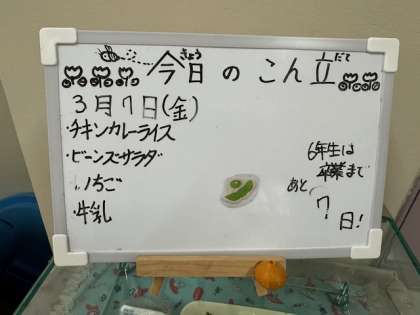 今日のこん立
きょう だて
3月7日(金)
・チキンカレーライス
・ビーンズサラダ
・いちご
・牛乳
6年生は
卒業まで
あと
7日!